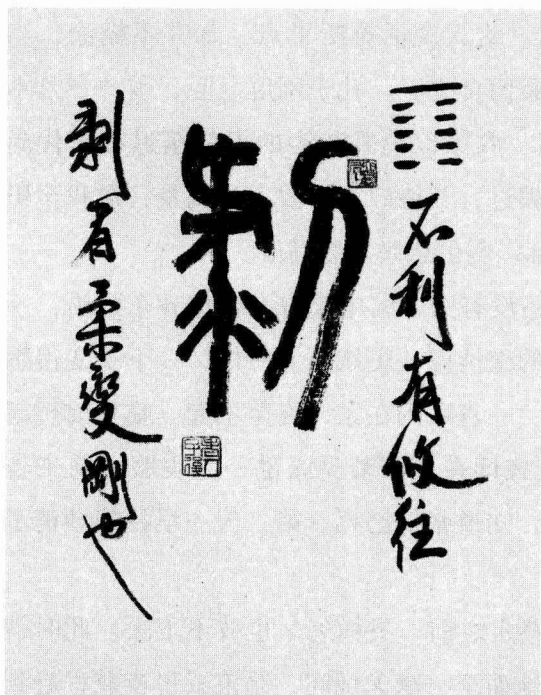 不利有攸往
剝
剝者柔變剛也